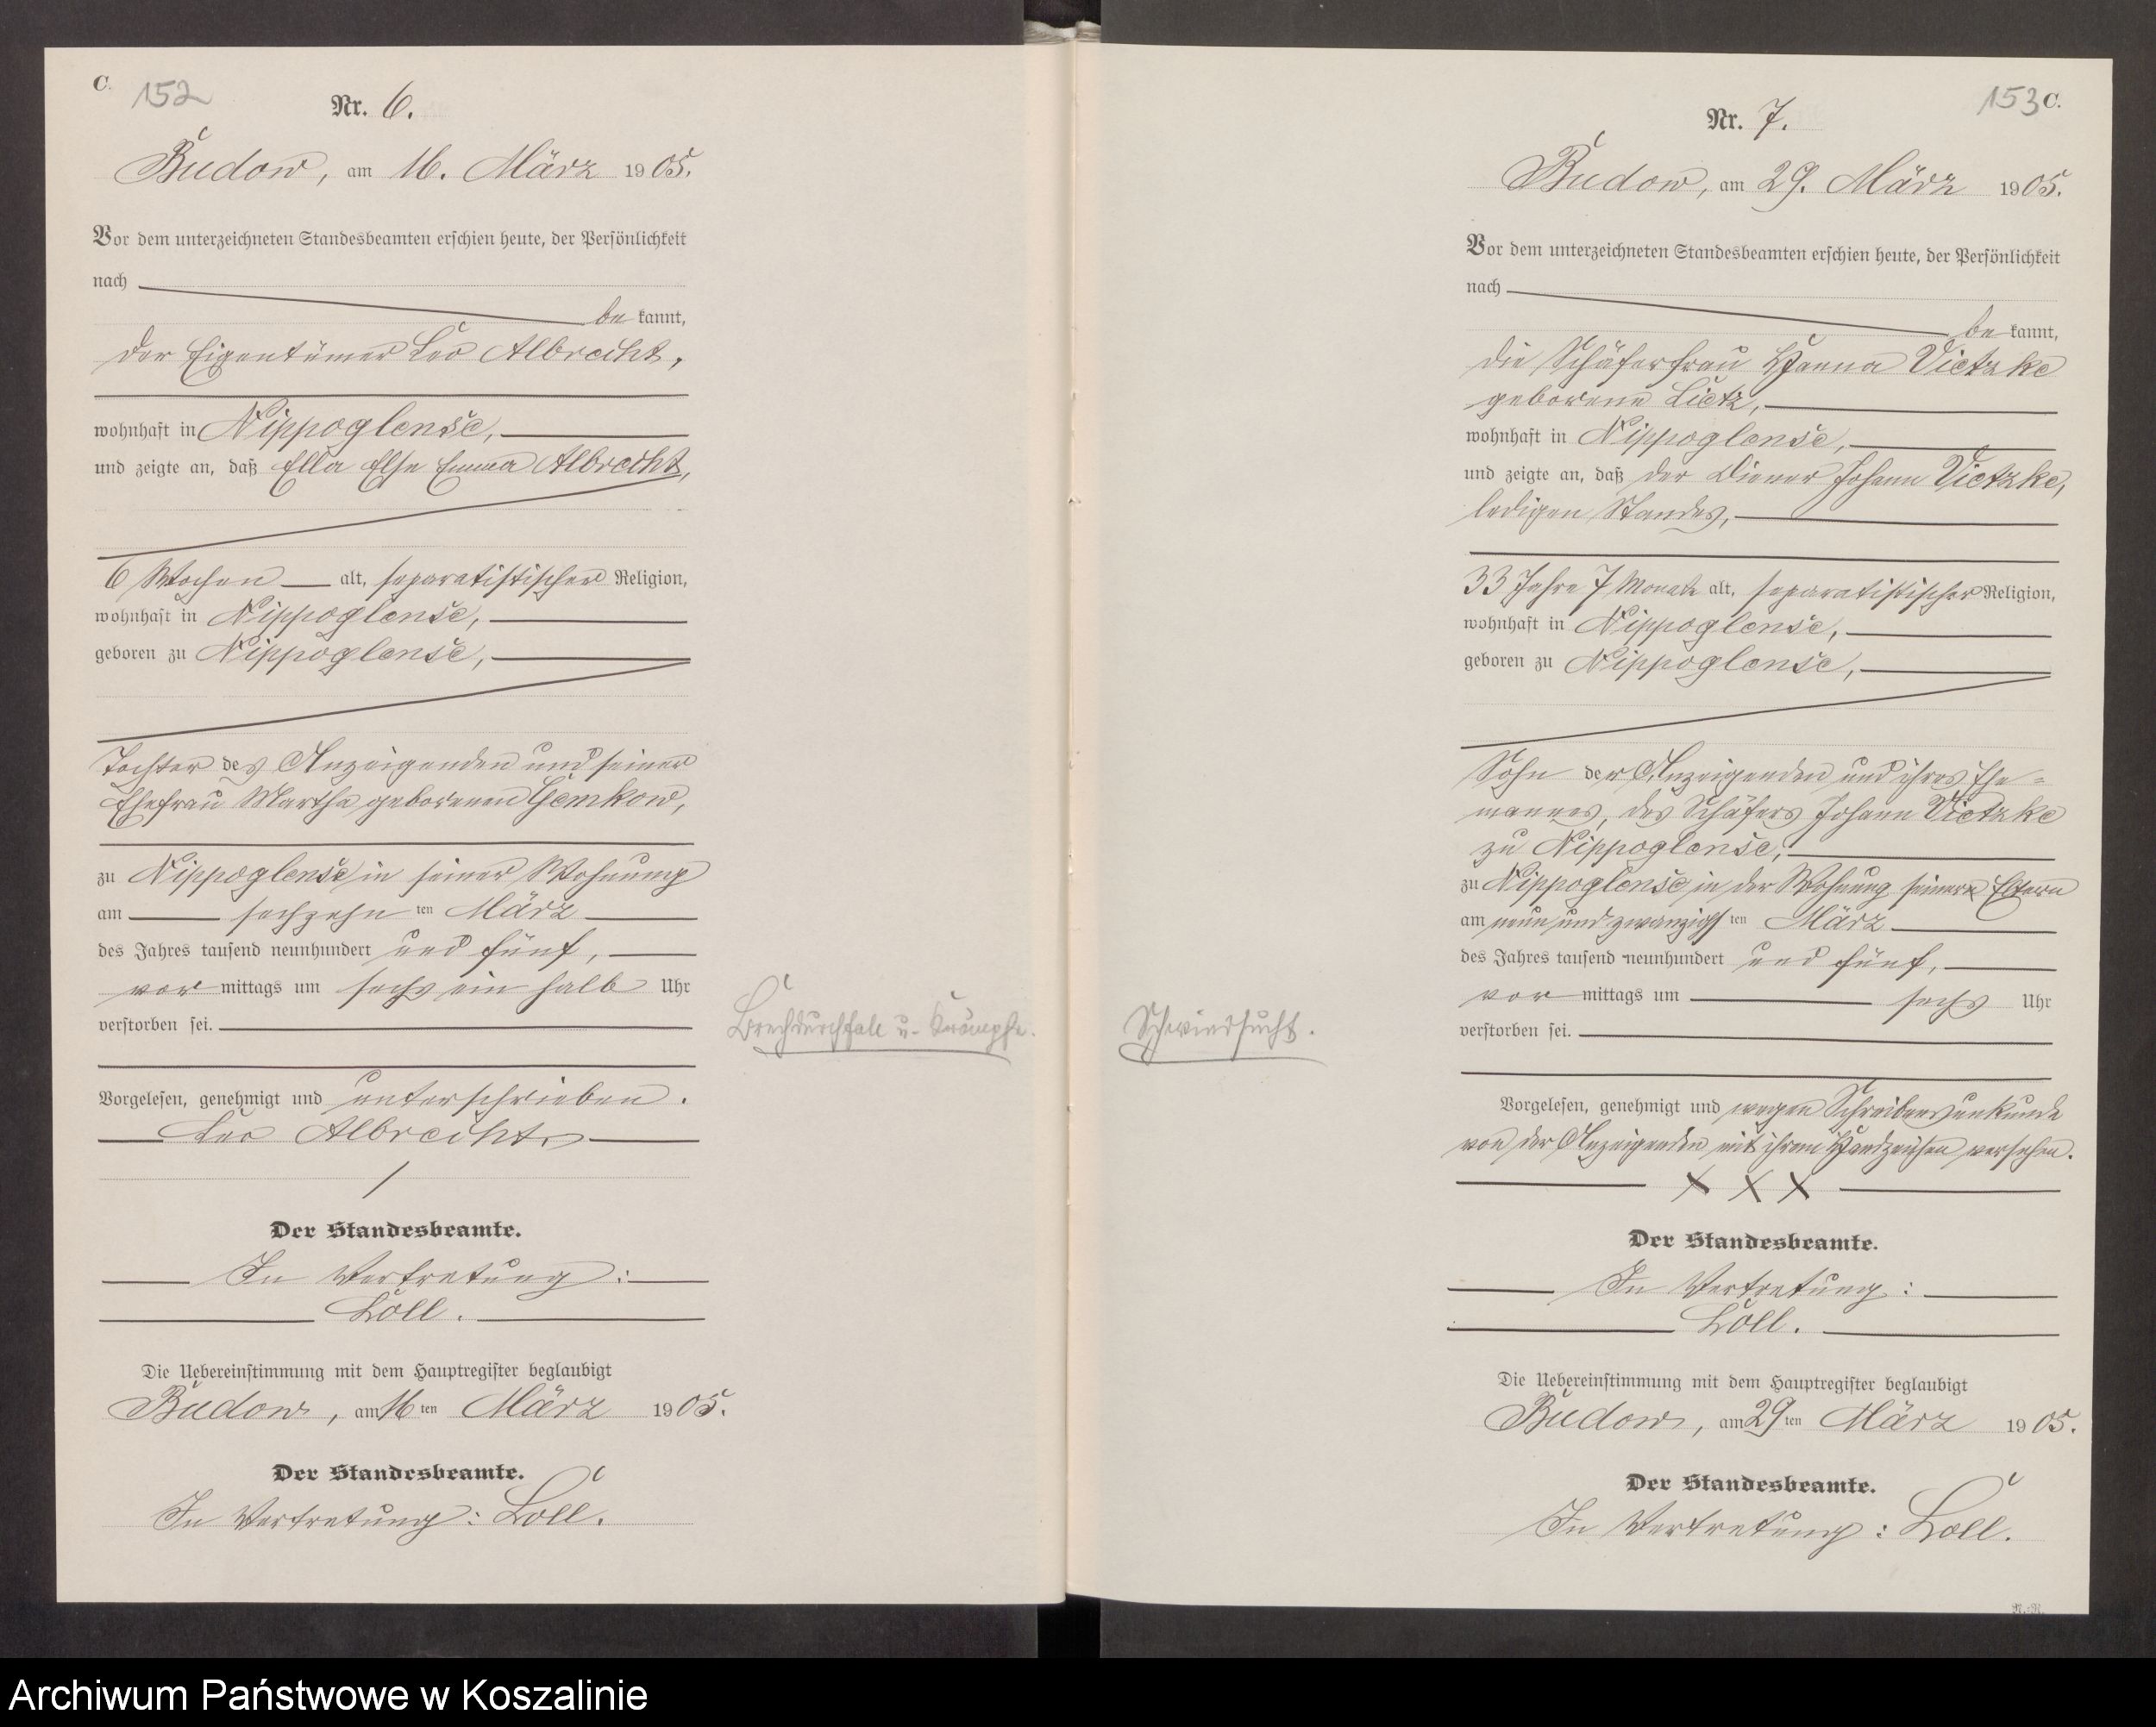 C.
152
Nr. 6.
Budow, am 16. März 1905.
Vor dem unterzeichneten Standesbeamten erschien heute, der Persönlichkeit
nach
be kannt,
der Eigentümer Leo Albrecht,
wohnhaft in Nippoglense,
und zeigte an, daß Ella Else Emma Albrecht,
6 Wochen alt, separatistischer Religion,
wohnhaft in Nippoglense,
geboren zu Nippoglense,
Tochter des Anzeigenden und seiner
Ehefrau Martha geborenen Gemkow,
zu Nippoglense in seiner Wohnung
am sechzehn ten März
des Jahres tausend neunhundert und fünf,
vor mittags um sechs ein halb Uhr
verstorben sei.
Brechdurchfall u. Krämpfe.
Vorgelesen, genehmigt und unterschrieben.
Leo Albrecht.
Der Standesbeamte.
In Vertretung:
Loll.
Die Uebereinstimmung mit dem Hauptregister beglaubigt
Budow, am 16 ten März 1905.
Der Standesbeamte.
In Vertretung: Loll.
153 C.
Nr. 7.
Budow, am 29. März 1905.
Vor dem unterzeichneten Standesbeamten erschien heute, der Persönlichkeit
nach
be kannt,
die Schäferfrau Hanna Vietzke
geborene Lietz,
wohnhaft in Nippoglense,
und zeigte an, daß der Diener Johann Vietzke,
ledigen Standes,
33 Jahre 7 Monate alt, separatistischer Religion,
wohnhaft in Nippoglense,
geboren zu Nippoglense,
Sohn der Anzeigenden und ihres Ehe=
mannes, des Schäfers Johann Vietzke
zu Nippoglense,
zu Nippoglense in der Wohnung seiner Eltern
am neun und zwanzigs ten März
des Jahres tausend neunhundert und fünf,
vor mittags um sechs Uhr
verstorben sei.
Schwindsucht.
Vorgelesen, genehmigt und wegen Schreibensunkunde
von der Anzeigenden mit ihrem Handzeichen versehen.
X X X
Der Standesbeamte.
In Vertretung:
Loll.
Die Uebereinstimmung mit dem Hauptregister beglaubigt
Budow, am 29 ten März 1905.
Der Standesbeamte.
In Vertretung: Loll.
Archiwum Państwowe w Koszalinie